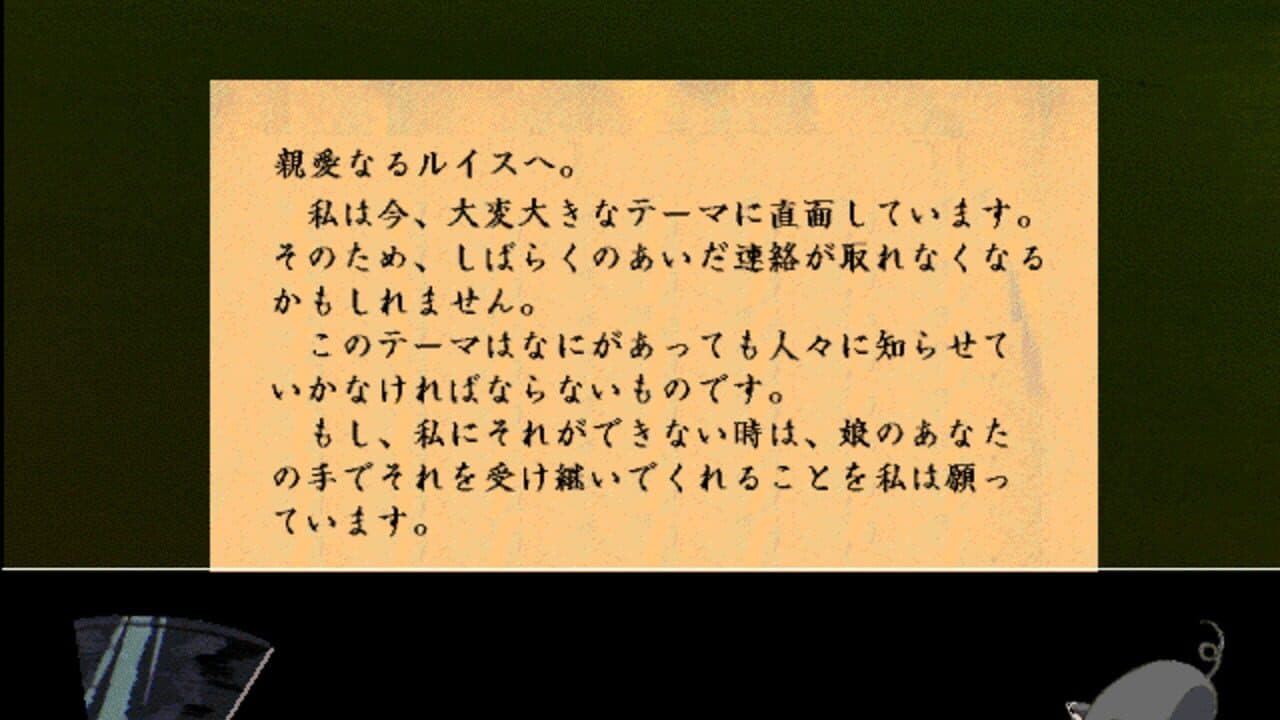 親愛なるルイスへ。
　私は今、大変大きなテーマに直面しています。
そのため、しばらくのあいだ連絡が取れなくなる
かもしれません。
　このテーマはなにがあっても人々に知らせて
いかなければならないものです。
　もし、私にそれができない時は、娘のあなた
の手でそれを受け継いでくれることを私は願っ
ています。